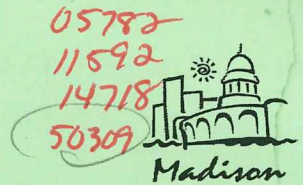 05782
11592
14718
50309
Madison